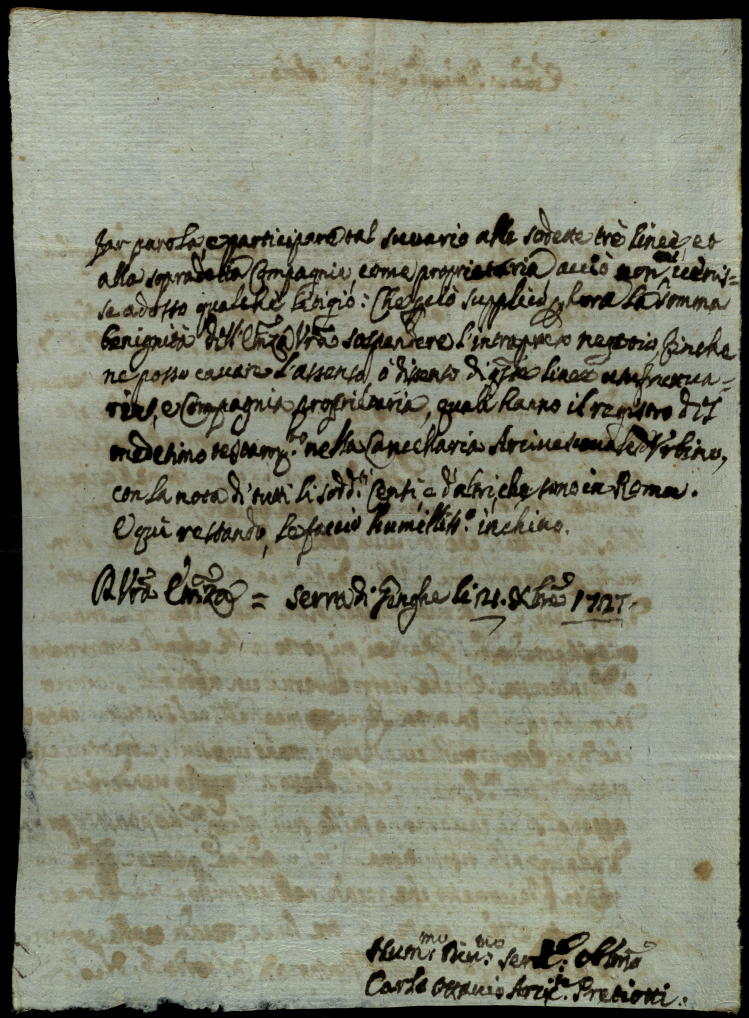 far parola e participare tal suvario alle sodette trè linee, et
alla sopradetta Compagnia, come proprietaria acciò non mi venis=
se adosso qualche litigio: Che perciò supplico hora la somma
benignità dell' Emza Vra sospendere l'intrapreso negotio, finche
ne posso cavare l'assenso, ò disenso di qste linee usufructua=
rie, e Compagnia proprietaria, quali hanno il registro del
medesimo testamto nella Cancellaria Arcivescovale d'Urbino,
con la nota di tutti li sodd.ti Censi, e d'altri, che sono in Roma.
E quì restando, le faccio humiliss.o inchino.
D. Vra Emza = Serra di Genghe li 21. Xbre 1727.
Hum.mo Div.mo ser.re obbmo
Carlo Ottavio Arcip.te Pretiotti.